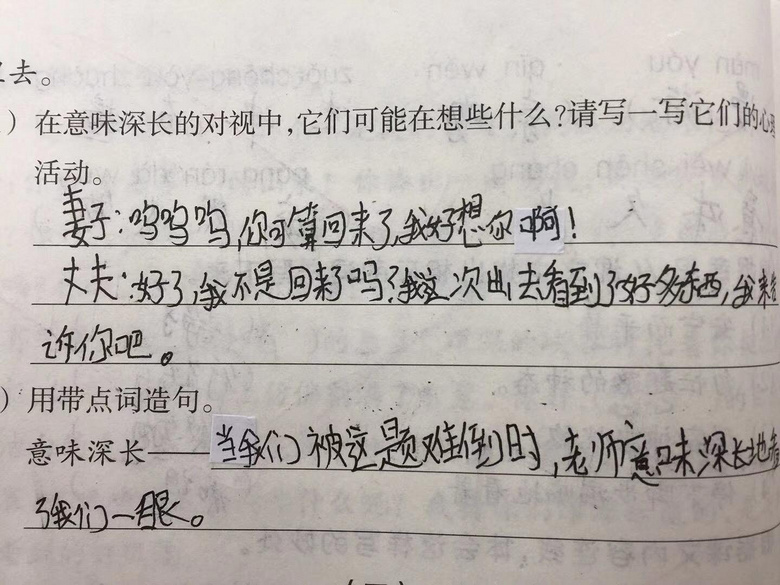 去。
)在意味深长的对视中,它们可能在想些什么?请写一写它们的心理
活动。
妻子:呜呜呜,你可算回来了,我好想你啊!
丈夫:好了,我不是回来了吗?我这次出去看到了好多东西,我来告
诉你吧。
)用带点词造句。
意味深长——当我们被这题难倒时,老师意味深长地看
了我们一眼。